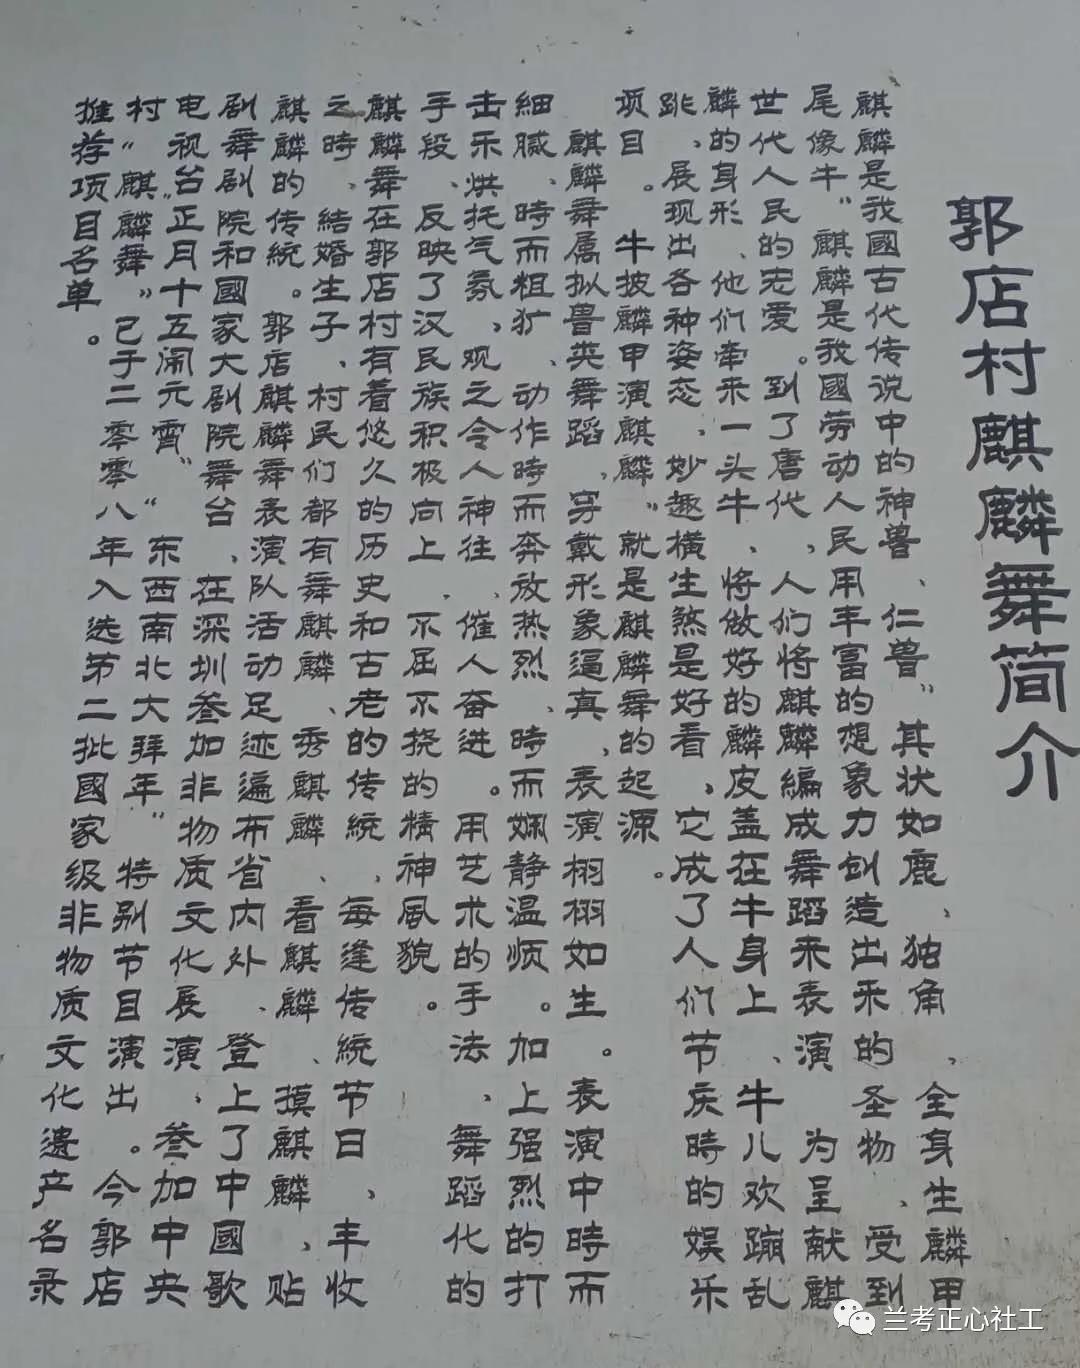 郭店村麒麟舞简介
麒麟是我國古代传说中的神兽、仁兽"其状如鹿、独角、全身生麟甲
尾像牛"麒麟是我國劳动人民用丰富的想象力创造出来的圣物、受到
世代人民的宠爱。到了唐代、人们将麒麟编成舞蹈来表演 为呈献麒
麟的身形、他们牵来一头牛、将做好的麟皮盖在牛身上、牛儿欢蹦乱
跳、展现出各种姿态、妙趣横生煞是好看、它成了人们节庆時的娱乐
项目。牛披麟甲演麒麟"就是麒麟舞的起源。
麒麟舞属拟兽类舞蹈、穿戴形象逼真、表演栩栩如生。表演中時而
细腻、時而粗犷、动作時而奔放热烈、時而娴静温顺。加上强烈的打
击乐烘托气氛、观之令人神往、催人奋进。用艺术的手法、舞蹈化的
手段、反映了汉民族积极向上、不屈不挠的精神风貌。
麒麟舞在郭店村有着悠久的历史和古老的传統、每逢传統节日、丰收
之時、結婚生子、村民们都有舞麒麟、秀麒麟、看麒麟、摸麒麟、贴
麒麟的传統。郭店麒麟舞表演队活动足迹遍布省内外、登上了中國歌
剧舞剧院和國家大剧院舞台、在深圳叁加非物质文化展演、叁加中央
电视台"正月十五闹元宵""东西南北大拜年"特别节目演出。今郭店
村"麒麟舞"已于二零零八年入选第二批國家级非物质文化遗产名录
推荐项目名单。
兰考正心社工